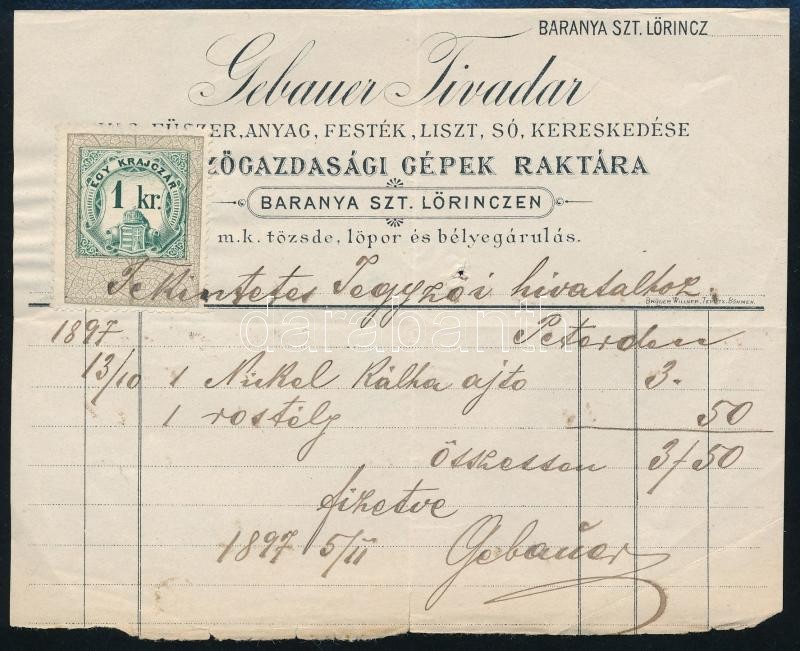 BARANYA SZT. LÖRINCZ
Gebauer Tivadar
FÜSZER, ANYAG, FESTÉK, LISZT, SÓ, KERESKEDÉSE
ZÖGAZDASÁGI GÉPEK RAKTÁRA
BARANYA SZT. LÖRINCZEN
m.k. tözsde, löpor és bélyegárulás.
EGY KRAJCZÁR
1 kr.
Tekintetes Jegyzöi hivatalhoz
1897 Peterden
13/10 1 Nickel Kálha ajto 3.
1 rostély 50
összessen 3/50
fizetve
1897 5/11 Gebauer
darabanth